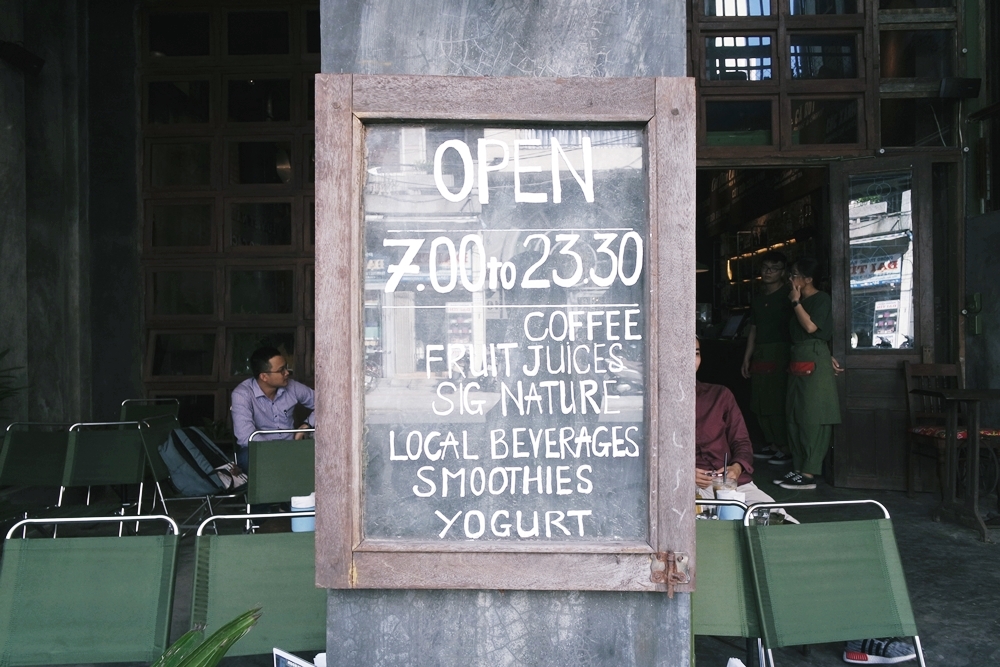 OPEN
7.00 to 23.30
COFFEE
FRUIT JUICES
SIG NATURE
LOCAL BEVERAGES
SMOOTHIES
YOGURT